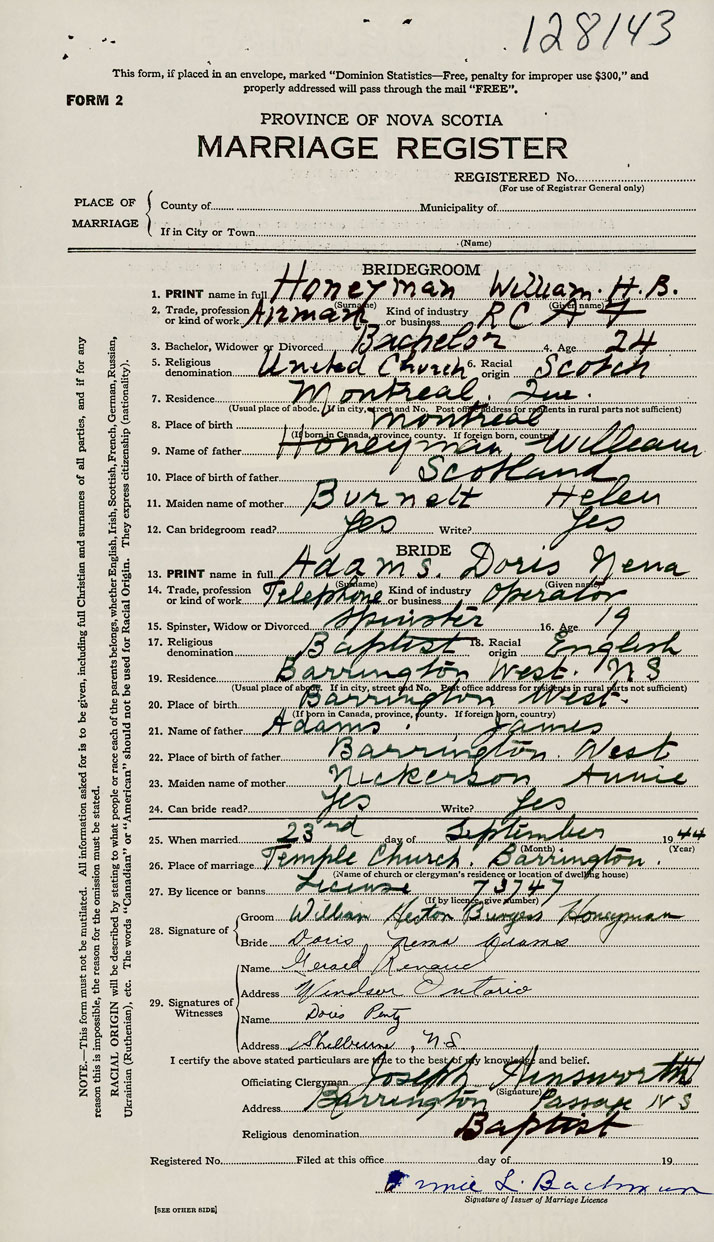 128143
This form, if placed in an envelope, marked “Dominion Statistics—Free, penalty for improper use $300,” and
properly addressed will pass through the mail “FREE”.
FORM 2
PROVINCE OF NOVA SCOTIA
MARRIAGE REGISTER
REGISTERED No.
(For use of Registrar General only)
PLACE OF MARRIAGE
County of Municipality of
If in City or Town
(Name)
BRIDEGROOM
1. PRINT name in full Honeyman William. H. B.
(Surname) (Given name)
2. Trade, profession or kind of work Airman Kind of industry or business R C A F
3. Bachelor, Widower or Divorced Bachelor 4. Age 24
5. Religious denomination United Church 6. Racial origin Scotch
7. Residence Montreal. Que.
(Usual place of abode. If in city, street and No. Post office address for residents in rural parts not sufficient)
8. Place of birth Montreal
(If born in Canada, province, county. If foreign born, country)
9. Name of father Honeyman William
10. Place of birth of father Scotland
11. Maiden name of mother Burnett Helen
12. Can bridegroom read? Yes Write? Yes
BRIDE
13. PRINT name in full Adams. Doris Nena
(Surname) (Given name)
14. Trade, profession or kind of work Telephone Kind of industry or business Operator
15. Spinster, Widow or Divorced Spinster 16. Age 19
17. Religious denomination Baptist 18. Racial origin English
19. Residence Barrington West. N S
(Usual place of abode. If in city, street and No. Post office address for residents in rural parts not sufficient)
20. Place of birth Barrington West.
(If born in Canada, province, county. If foreign born, country)
21. Name of father Adams. James
22. Place of birth of father Barrington. West
23. Maiden name of mother Nickerson Annie
24. Can bride read? Yes Write? Yes
25. When married 23rd day of September 1944
(Month) (Year)
26. Place of marriage Temple Church. Barrington.
(Name of church or clergyman's residence or location of dwelling house)
27. By licence or banns License 73747
(If by licence, give number)
28. Signature of
Groom William Heston Burgess Honeyman
Bride Doris Nena Adams
29. Signatures of Witnesses
Name Gerard Renaud
Address Windsor Ontario
Name Doris Penty
Address Shelburne, N.S.
I certify the above stated particulars are true to the best of my knowledge and belief.
Officiating Clergyman Joseph Ainsworth
(Signature)
Address Barrington Passage N S
Religious denomination Baptist
Registered No. Filed at this office day of 19
L. Bachman
Signature of Issuer of Marriage Licence
[SEE OTHER SIDE]
NOTE.—This form must not be mutilated. All information asked for is to be given, including full Christian and surnames of all parties, and if for any
reason this is impossible, the reason for the omission must be stated.
RACIAL ORIGIN will be described by stating to what people or race each of the parents belongs, whether English, Irish, Scottish, French, German, Russian,
Ukrainian (Ruthenian), etc. The words “Canadian” or “American” should not be used for Racial Origin. They express citizenship (nationality).